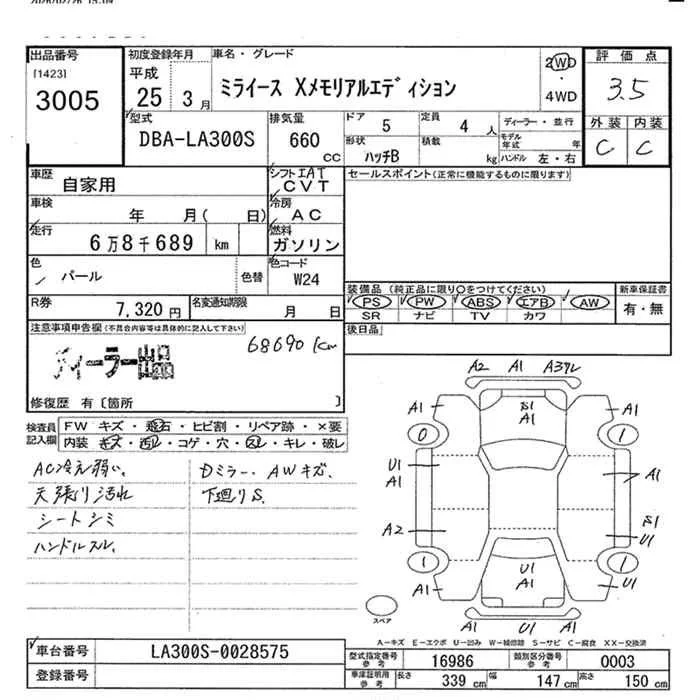 出品番号 初度登録年月 車名・グレード 評価点
[1423] 平成 2WD
3005 25 3月 ミライース Xメモリアルエディション ・ 3.5
4WD
型式 排気量 ドア 5 定員 4人 ディーラー・並行 外装 内装
DBA-LA300S 660 CC 形状 ハッチB 積載 kg モデル年式 年 C C
ハンドル 左・右
車歴 自家用 シフト IAT CVT セールスポイント(正常に機能するものに限ります)
車検 年 月( 日) 冷房 AC
走行 6万8千689 km 燃料 ガソリン
色 パール 色替 色コード W24
装備品(純正品に限り○をつけてください) 新車保証書
R券 7,320円 名変通知期限 月 日 PS PW ABS エアB AW 有・無
SR ナビ TV カワ
注意事項申告欄(不具合内容等は具体的に記入して下さい) 後日品
68690km
ディーラー出品
修復歴 有〔箇所 〕
検査員記入欄 FW キズ・飛石・ヒビ割・リペア跡・×要
内装・キズ・汚レ・コゲ・穴・スレ・キレ・破レ
AC冷え弱い、 Dミラー、AWキズ、
天張り汚れ 下廻りS、
シートシミ
ハンドルスレ、
A2 A1
A1 A1
A1
0 1
U1
A1 A1
A2 U1
1 1
A1 U1
A1 U1
A1 U1 A1
スペア
A-キズ E-エクボ U-凹み W-補修跡 S-サビ C-腐食 XX-交換済
車台番号 LA300S-0028575 型式指定番号 参考 16986 類別区分番号 参考 0003
登録番号 車庫証明用 参考 長さ 339 cm 幅 147 cm 高さ 150 cm